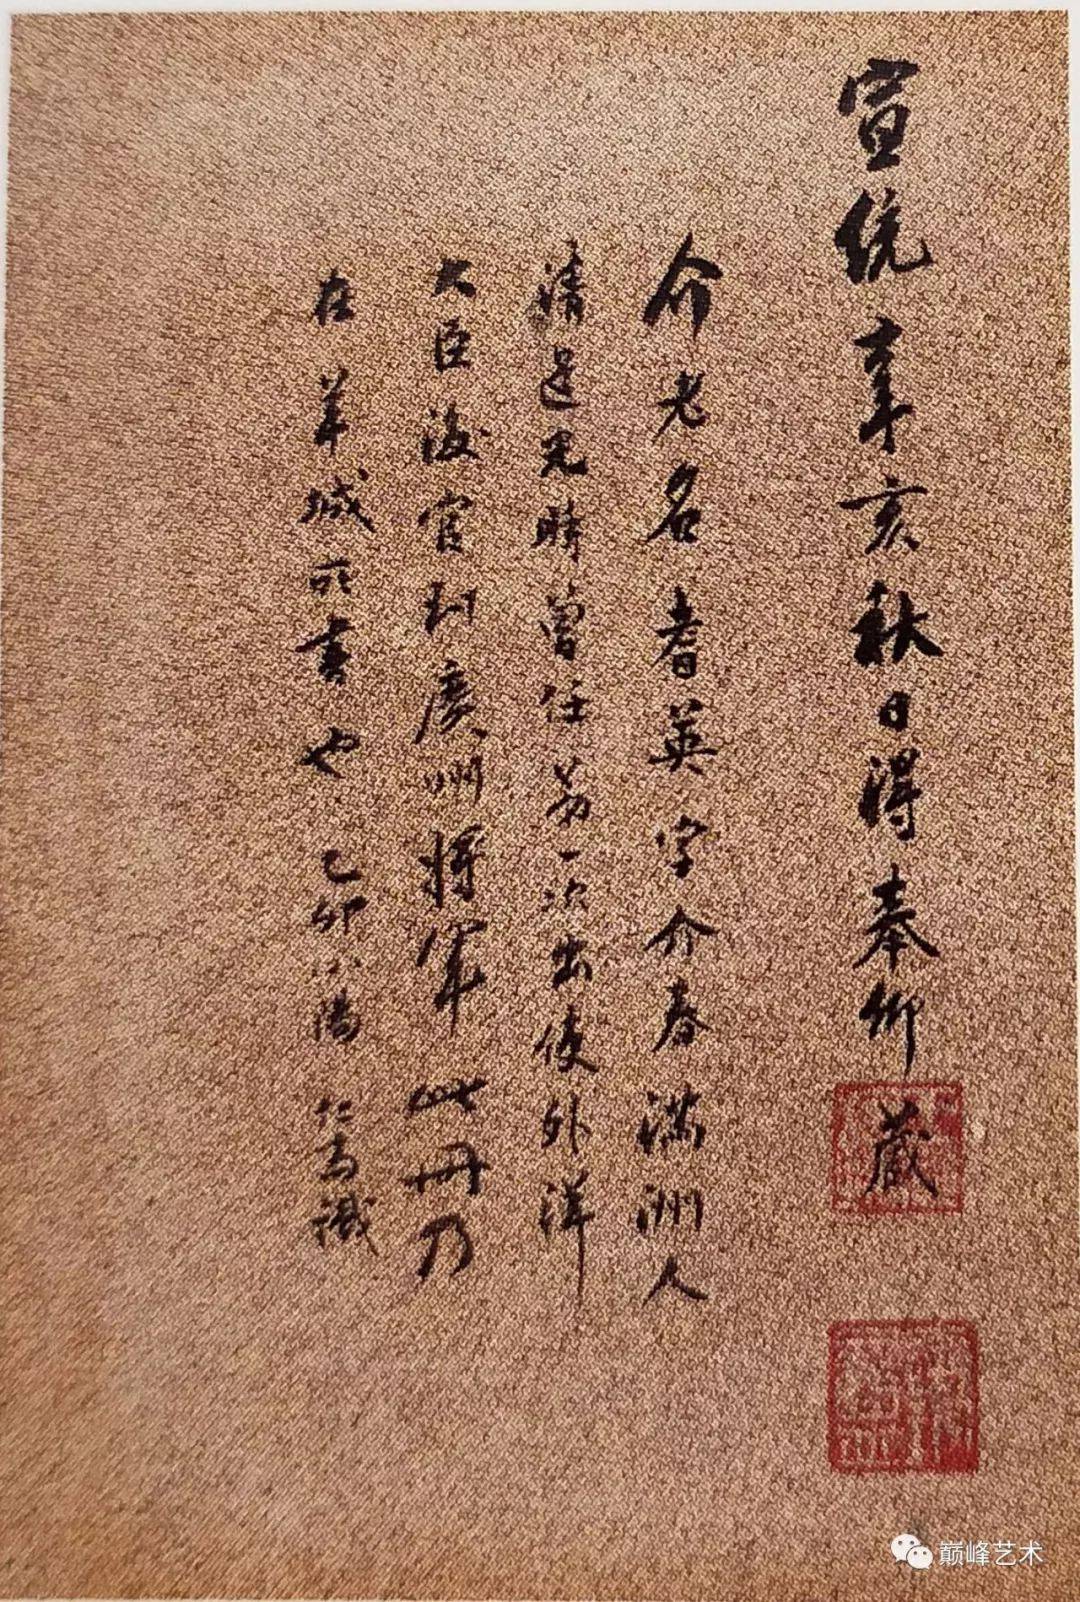 宣統辛亥秋日得奉仰藏
介老名耆英字介春滿洲人
清道光時曾任第一次出使外洋
大臣後官到廣州將軍此冊乃
在羊城所書也 己卯小陽 仁嵩識
巅峰艺术